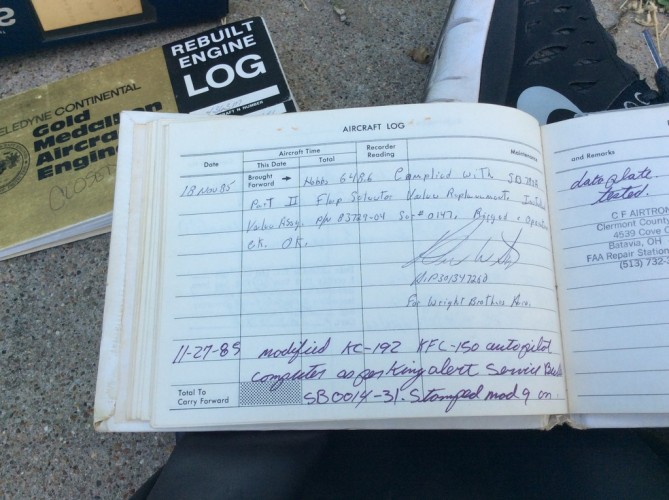 REBUILT
ENGINE
LOG
TELEDYNE CONTINENTAL
Gold
Medallion
Aircraft
Engine
CLOSED
AIRCRAFT LOG
Date
Aircraft Time
This Date
Total
Recorder
Reading
Maintenance
and Remarks
Brought
Forward
18 Nov 85 Hobbs 648.6 Complied with SB
Part II Flap Selector Valve Replacement. Install
Valve Assy. P/N 83729-04 Ser# 0147. Rigged + Operation
CK. OK.
A+P301347260
For Wright Brothers Aero.
11-27-85 modified KC-192 KFC-150 autopilot
computer as per King alert Service
SB0014-31. Stamped mod 9 on
Total To
Carry Forward
data plate.
tested.
C F AIRTRON
Clermont County
4539 Cove
Batavia, OH
FAA Repair Station
(513) 732-